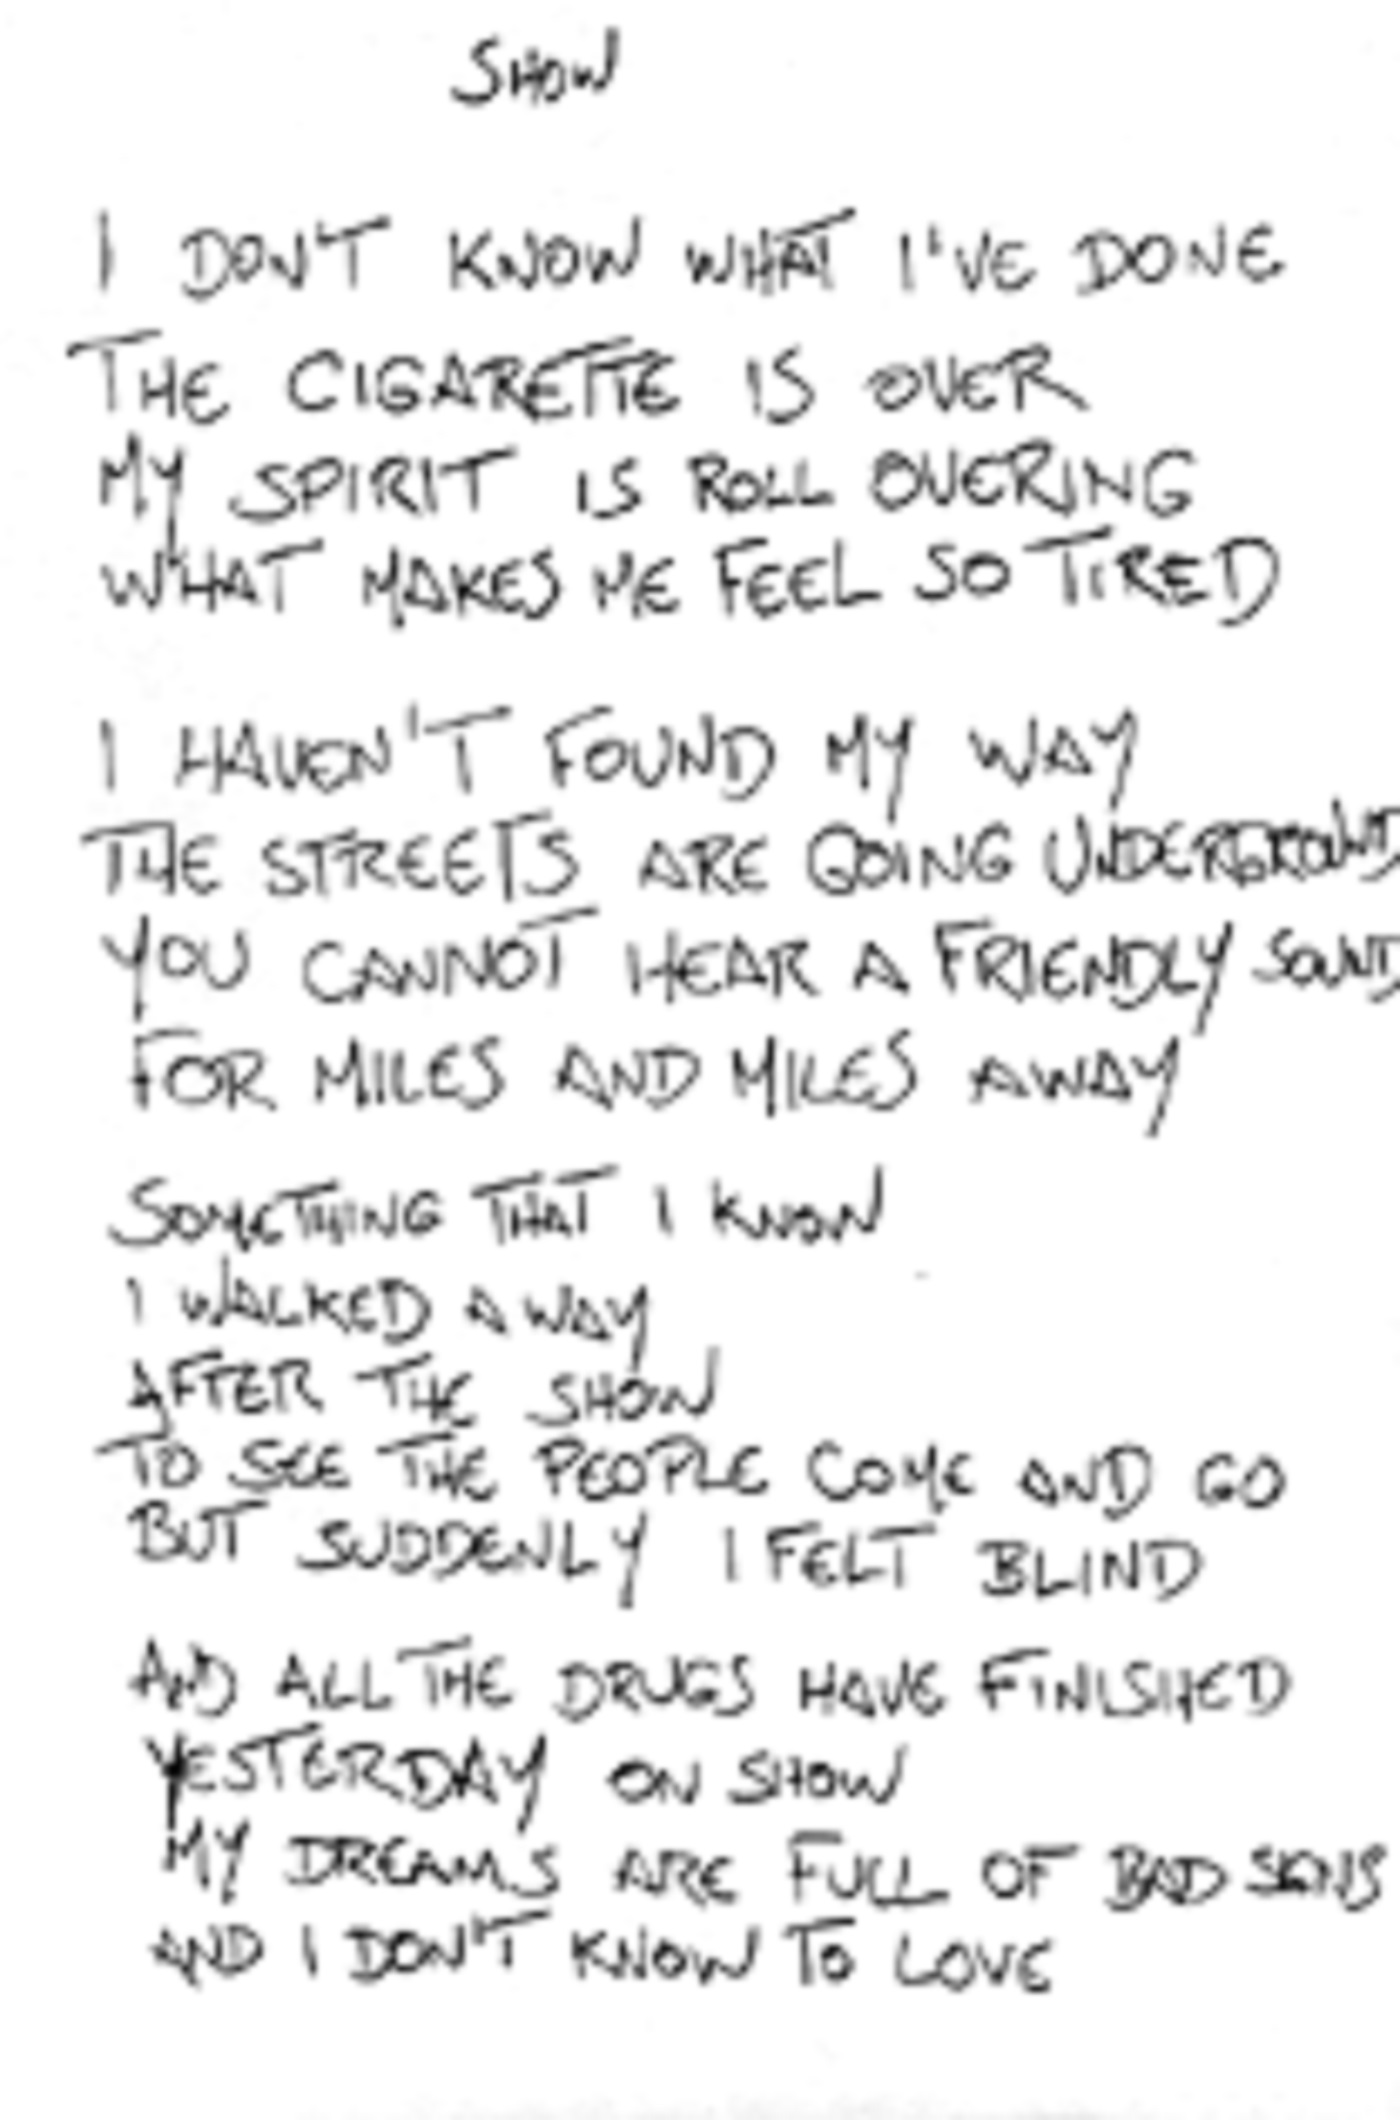 SHOW
I DON'T KNOW WHAT I'VE DONE
THE CIGARETTE IS OVER
MY SPIRIT IS ROLL OVERING
WHAT MAKES ME FEEL SO TIRED
I HAVEN'T FOUND MY WAY
THE STREETS ARE GOING UNDERGROUND
YOU CANNOT HEAR A FRIENDLY SOUND
FOR MILES AND MILES AWAY
SOMETHING THAT I KNOW
I WALKED AWAY
AFTER THE SHOW
TO SEE THE PEOPLE COME AND GO
BUT SUDDENLY I FELT BLIND
AND ALL THE DRUGS HAVE FINISHED
YESTERDAY ON SHOW
MY DREAMS ARE FULL OF BAD SIGNS
AND I DON'T KNOW TO LOVE